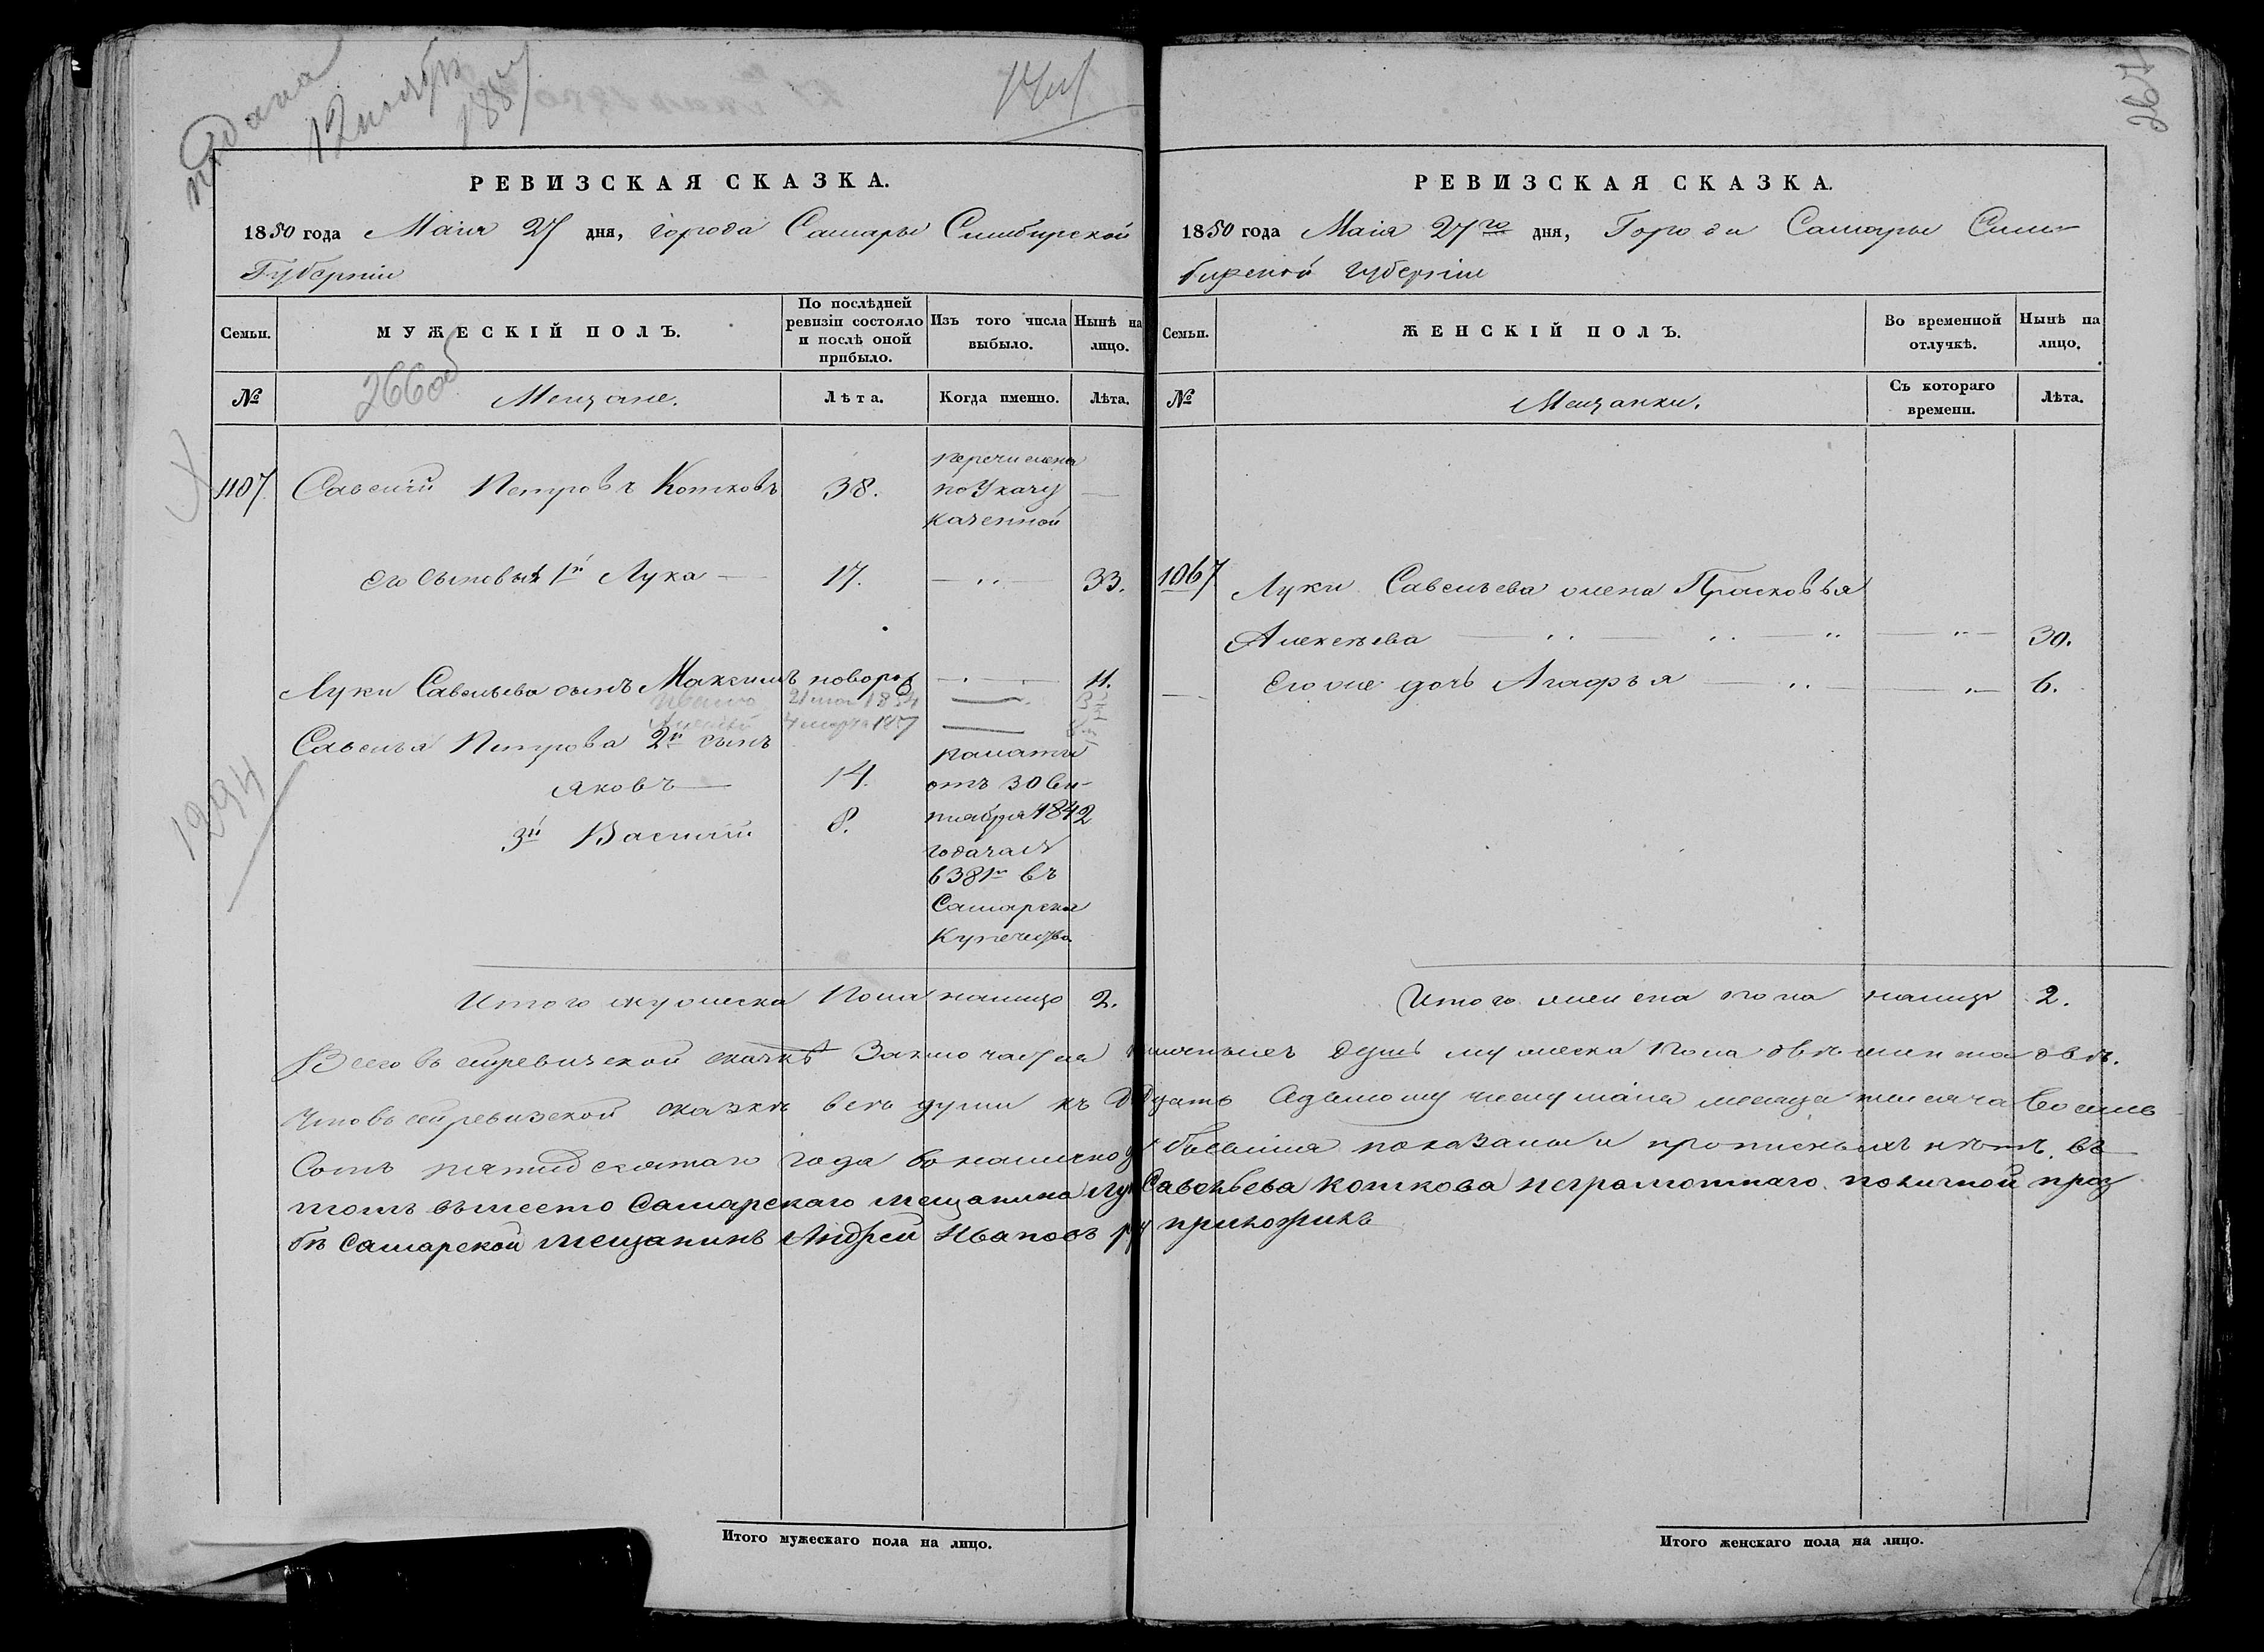 подана
12 ноября
1857
РЕВИЗСКАЯ СКАЗКА.
1850 года Маія 27 дня, города Самары Симбирской
Губерніи
Семьи.
МУЖЕСКІЙ ПОЛЪ.
По послѣдней ревизіи состояло и послѣ оной прибыло.
Изъ того числа выбыло.
Нынѣ на лицо.
№
266 об
Мещане.
Лѣта.
Когда именно.
Лѣта.
1107 Савелій Петровъ Котковъ 38. перечислена по Указу казенной —
Его сыновья 1й Лука — 17. — „ — 33.
Луки Савельева сынъ Максимъ новорож — . — 11.
21 мая 1854
4 марта 1857
Савелья Петрова 2й сынъ
Яковъ — 14.
3й Василій 8.
палаты
отъ 30 Сен-
тября 1842
года за №
6381м въ
Самарска
Купечество
1294
Итого мужеска Пола налицо 2.
РЕВИЗСКАЯ СКАЗКА.
1850 года Маія 27го дня, Города Самары Сим-
бирской губерніи
Семьи.
ЖЕНСКІЙ ПОЛЪ.
Во временной отлучкѣ.
Нынѣ на лицо.
№
Мещанки.
Съ котораго времени.
Лѣта.
267
1067 Луки Савельева жена Прасковья
Алексѣева — „ — „ „ — „ — 30.
— Его же дочь Агафья — „ — „ — 6.
Итого женска пола налицо 2.
Всего въ сей ревизской сказкѣ Заключается наличныхъ душъ мужеска Пола двѣ женска двѣ.
Что въ сей ревизской сказкѣ всѣ души къ Двадцать Седьмому числу маія месяца тысяча восемь
Сотъ пятидесятаго года во наличноу бывшія показаны и прописныхъ нѣтъ. въ
томъ вместо Самарскаго мещанина Луки Савельева Коткова неграмотнаго по личной проз
бѣ Самарской мещанинъ Андрей Ивановъ руку приложилъ
Итого мужескаго пола на лицо.
Итого женскаго пола на лицо.